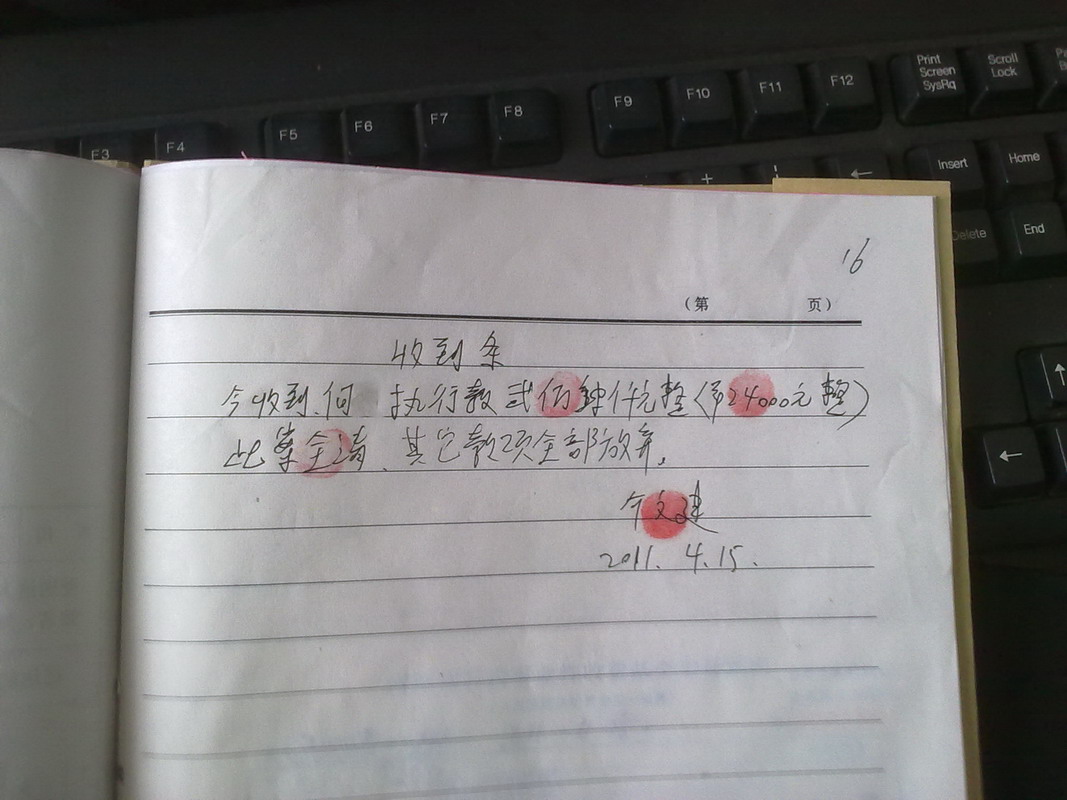 F3 F4 F5 F6 F7 F8 F9 F10 F11 F12 Print Screen SysRq Scroll Lock
+ ← Insert Home
Delete End
↑
←
16
（第 页）
收到条
今收到何 执行款 元整（24000元整）
此案全清、其它款项全部放弃。
文建
2011.4.15.